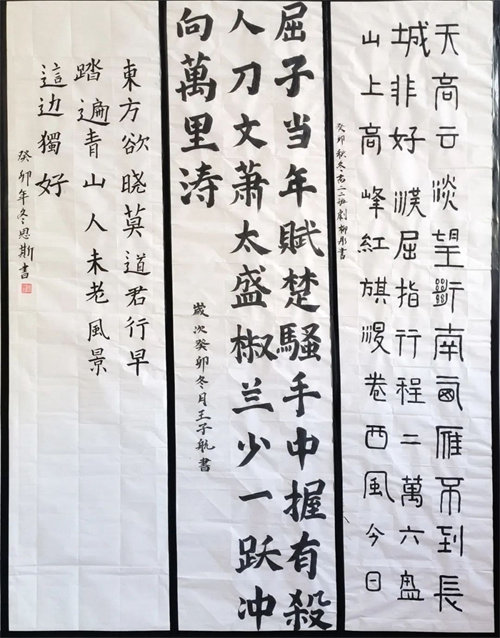 天高云淡望斷南飛雁不到長
城非好漢屈指行程二萬六盤
山上高峰紅旗漫卷西風今日
癸卯秋冬班劉柳彤書
屈子当年賦楚騷手中握有殺
人刀文蕭太盛椒兰少一跃冲
向萬里涛
歲次癸卯冬月王子航書
東方欲晓莫道君行早
踏遍青山人未老風景
這边獨好
癸卯年冬恩斯書